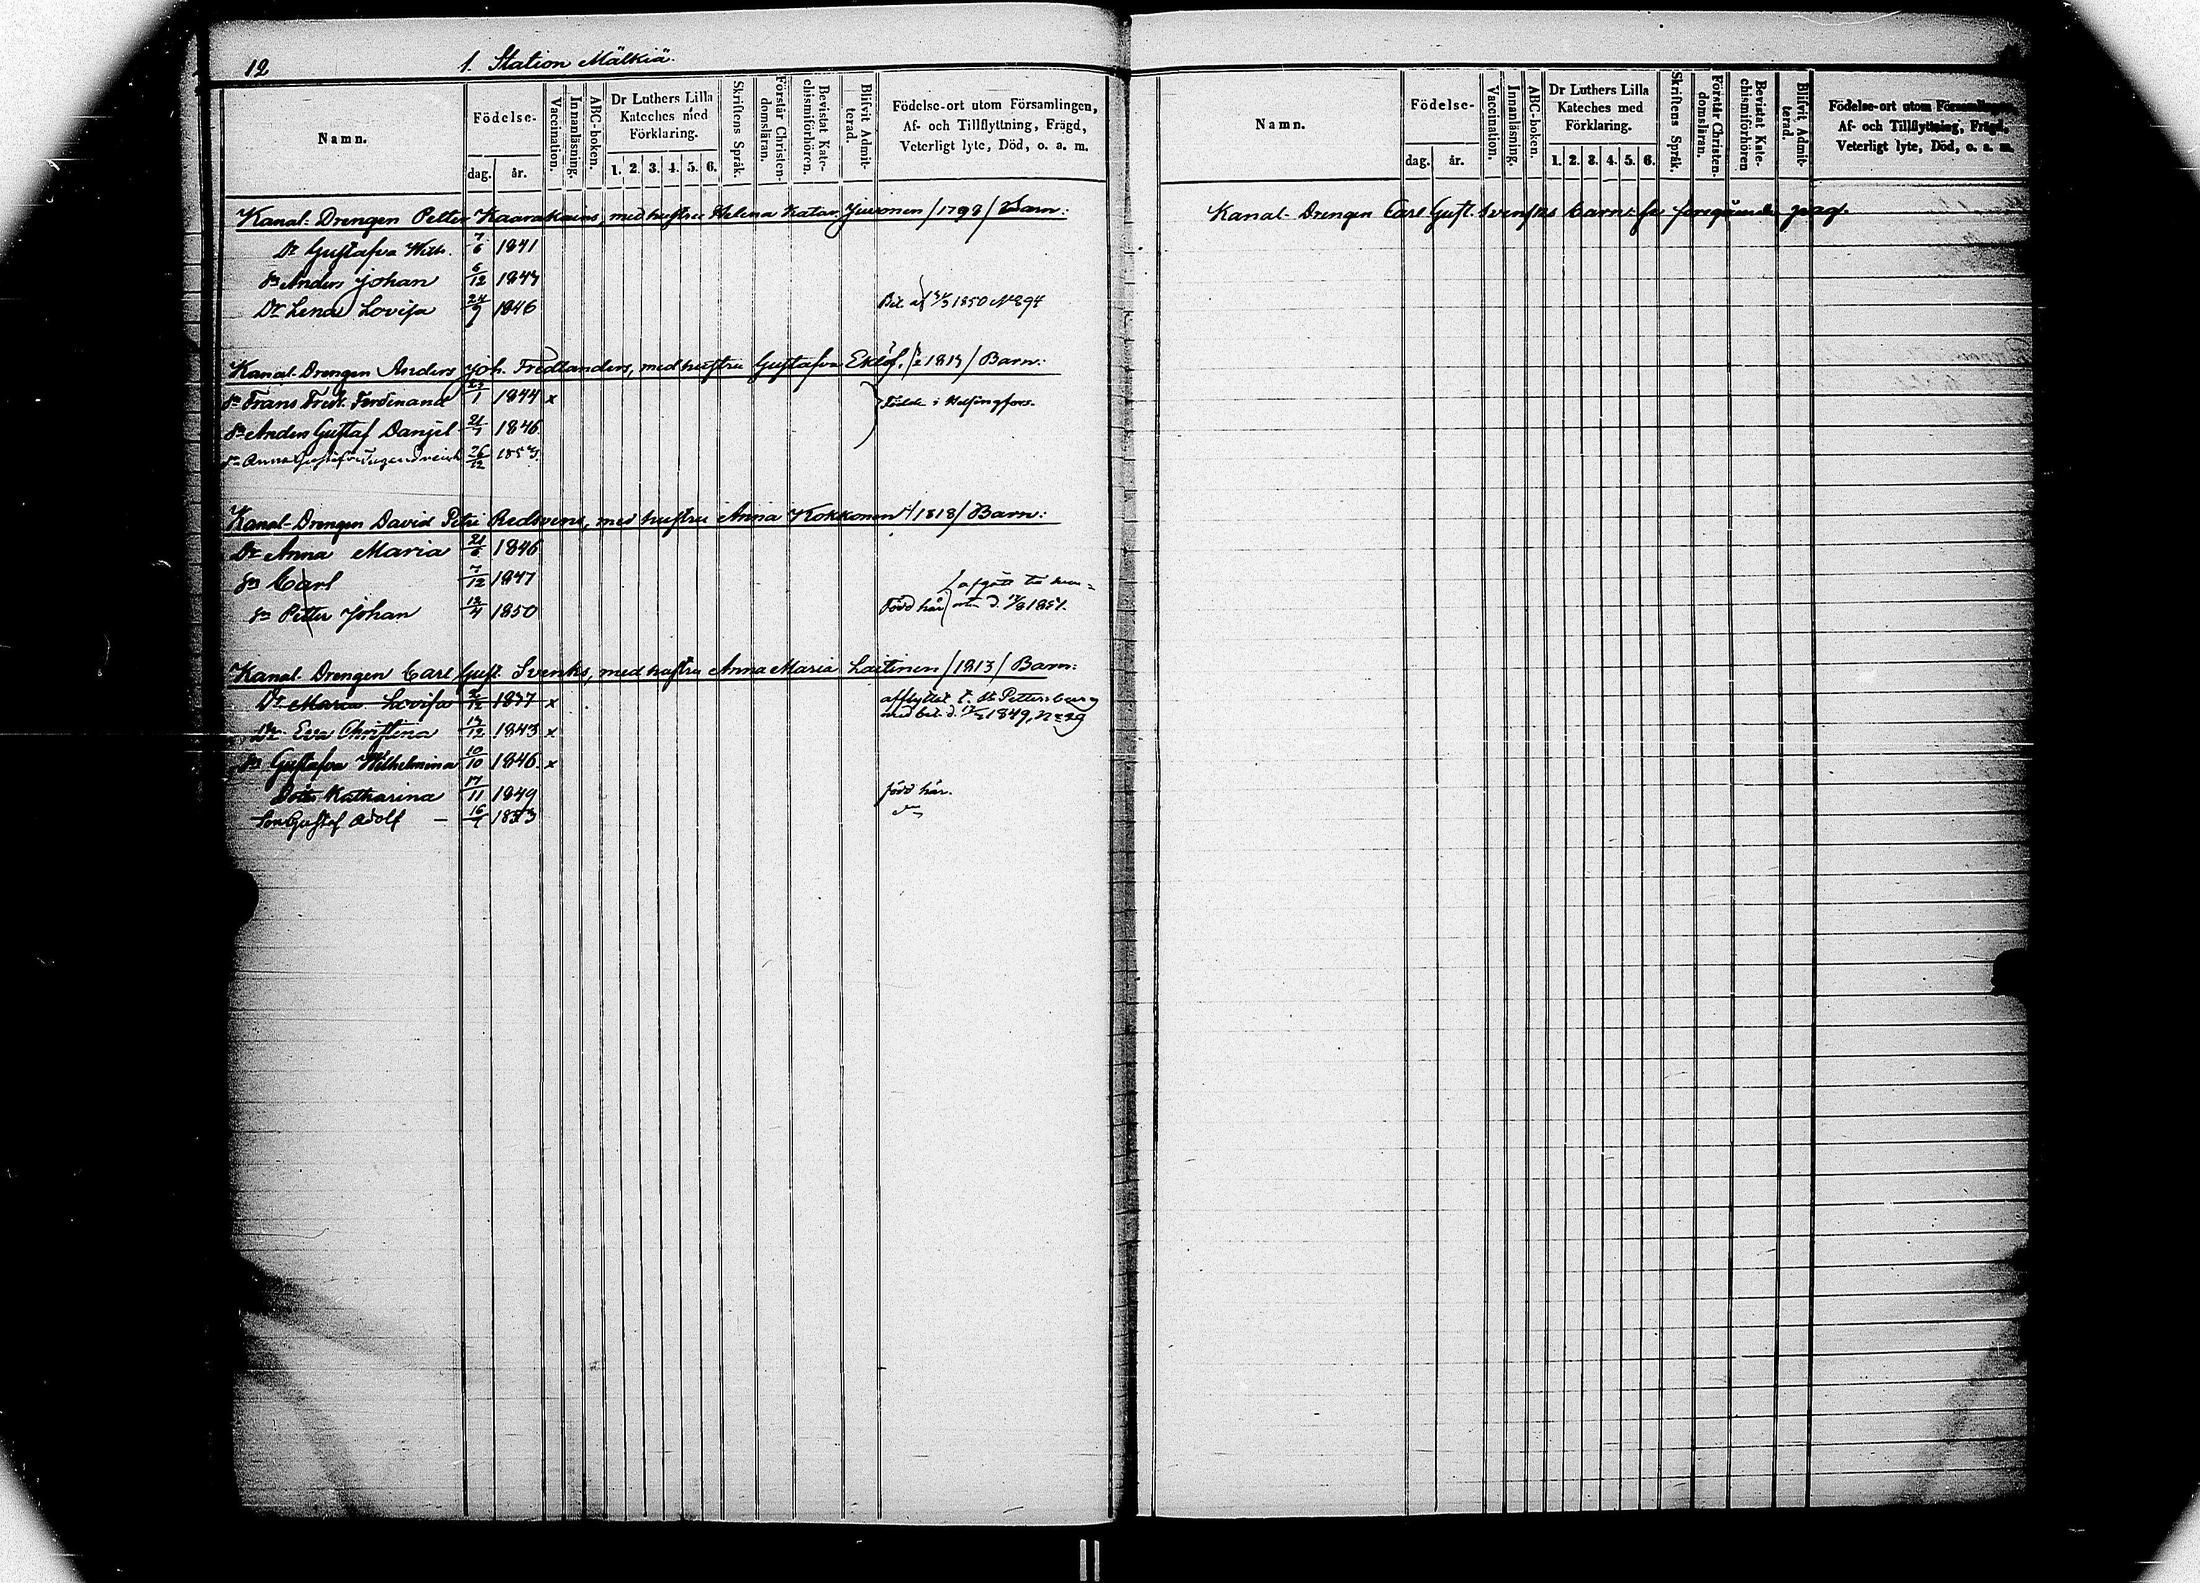 12
1. Station Mälkiä.
Namn.
Födelse-
dag.
år.
Vaccination.
Innanläsning.
ABC-boken.
Dr Luthers Lilla
Kateches med
Förklaring.
1. 2. 3. 4. 5. 6.
Skriftens Språk.
Förstår Christen-
domsläran.
Bevistat Kate-
chismiförhören.
Blifvit Admit-
terad.
Födelse-ort utom Församlingen,
Af- och Tillflyttning, Frägd,
Veterligt lyte, Död, o. a. m.
Kanal-Drengen Petter med hustru Helena Katar. Jusonen /1798/ Barn:
Dr Gustafva Wilh. 7/6 1841
Sn Anders Johan 6/12 1844
Dr Lena Lovisa 24/9 1846 1850 N 894
Kanal-Drengen Anders Joh. Fredlanders, med hustru Gustafva Eklöf. 1819/ Barn:
Sn Frans Fredr. Ferdinand 23/1 1844 x Födde i Helsingfors.
Sn Anders Gustaf Danjel 21/7 1846
Anna Gustafva 26/12
Kanal-Drengen David Petri med hustru Anna Kokkonen /1818/ Barn:
Dr Anna Maria 21/6 1846
Sn Carl 7/12 1847 afgått
Sn Petter Johan 12/4 1850 Född här
Kanal-Drengen Carl Gust. Svenks, med hustru Anna Maria Laitinen /1813/ Barn:
Dr Maria Lovisa 1837 x afflyttat t. St. Pettersburg
med bet. d. 1849, No 29
Dr Eva Christina 14/12 1843 x
Dr Gustafva Wilhelmina 10/10 1846 x
Dotter Katharina 17/11 1849 född här.
Son Gustaf Adolf – 16/7 1853 do
Namn.
Födelse-
dag.
år.
Vaccination.
Innanläsning.
ABC-boken.
Dr Luthers Lilla
Kateches med
Förklaring.
1. 2. 3. 4. 5. 6.
Skriftens Språk.
Förstår Christen-
domsläran.
Bevistat Kate-
chismiförhören
Blifvit Admit-
terad.
Födelse-ort utom Församlingen,
Af- och Tillflyttning, Frägd,
Veterligt lyte, Död, o. a. m.
Kanal-Drengen Carl Gust. Svenskes barn: se föregående pag.